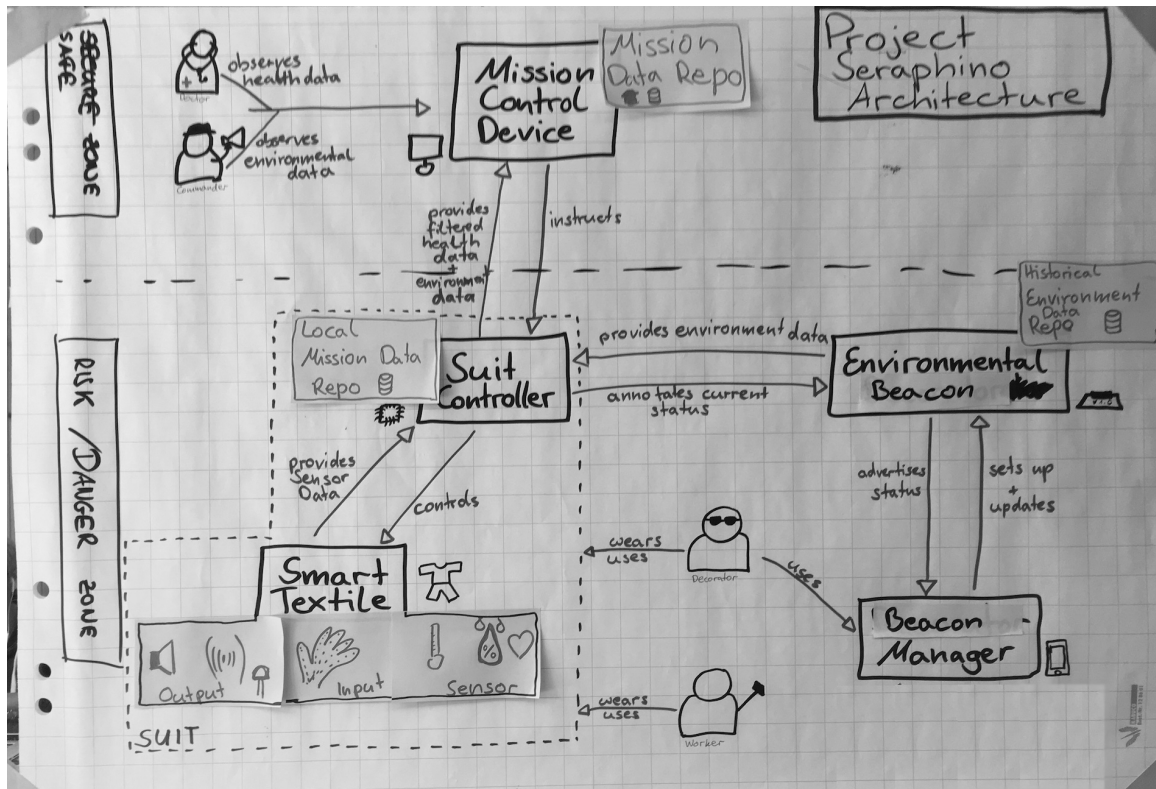 SECURE ZONE
SAFE
Doctor
observes
health data
Commander
observes
environmental
data
Mission
Control
Device
Mission
Data Repo
Project
Seraphino
Architecture
provides
filtered
health
data
+
environment
data
instructs
RISK / DANGER ZONE
Local
Mission Data
Repo
Suit
Controller
provides environment data
annotates current
status
Historical
Environment
Data
Repo
Environmental
Beacon
provides
Sensor
Data
controls
advertises
status
sets up
+
updates
Smart
Textile
Output
Input
Sensor
SUIT
wears
uses
Decorator
uses
Beacon
Manager
wears
uses
Worker